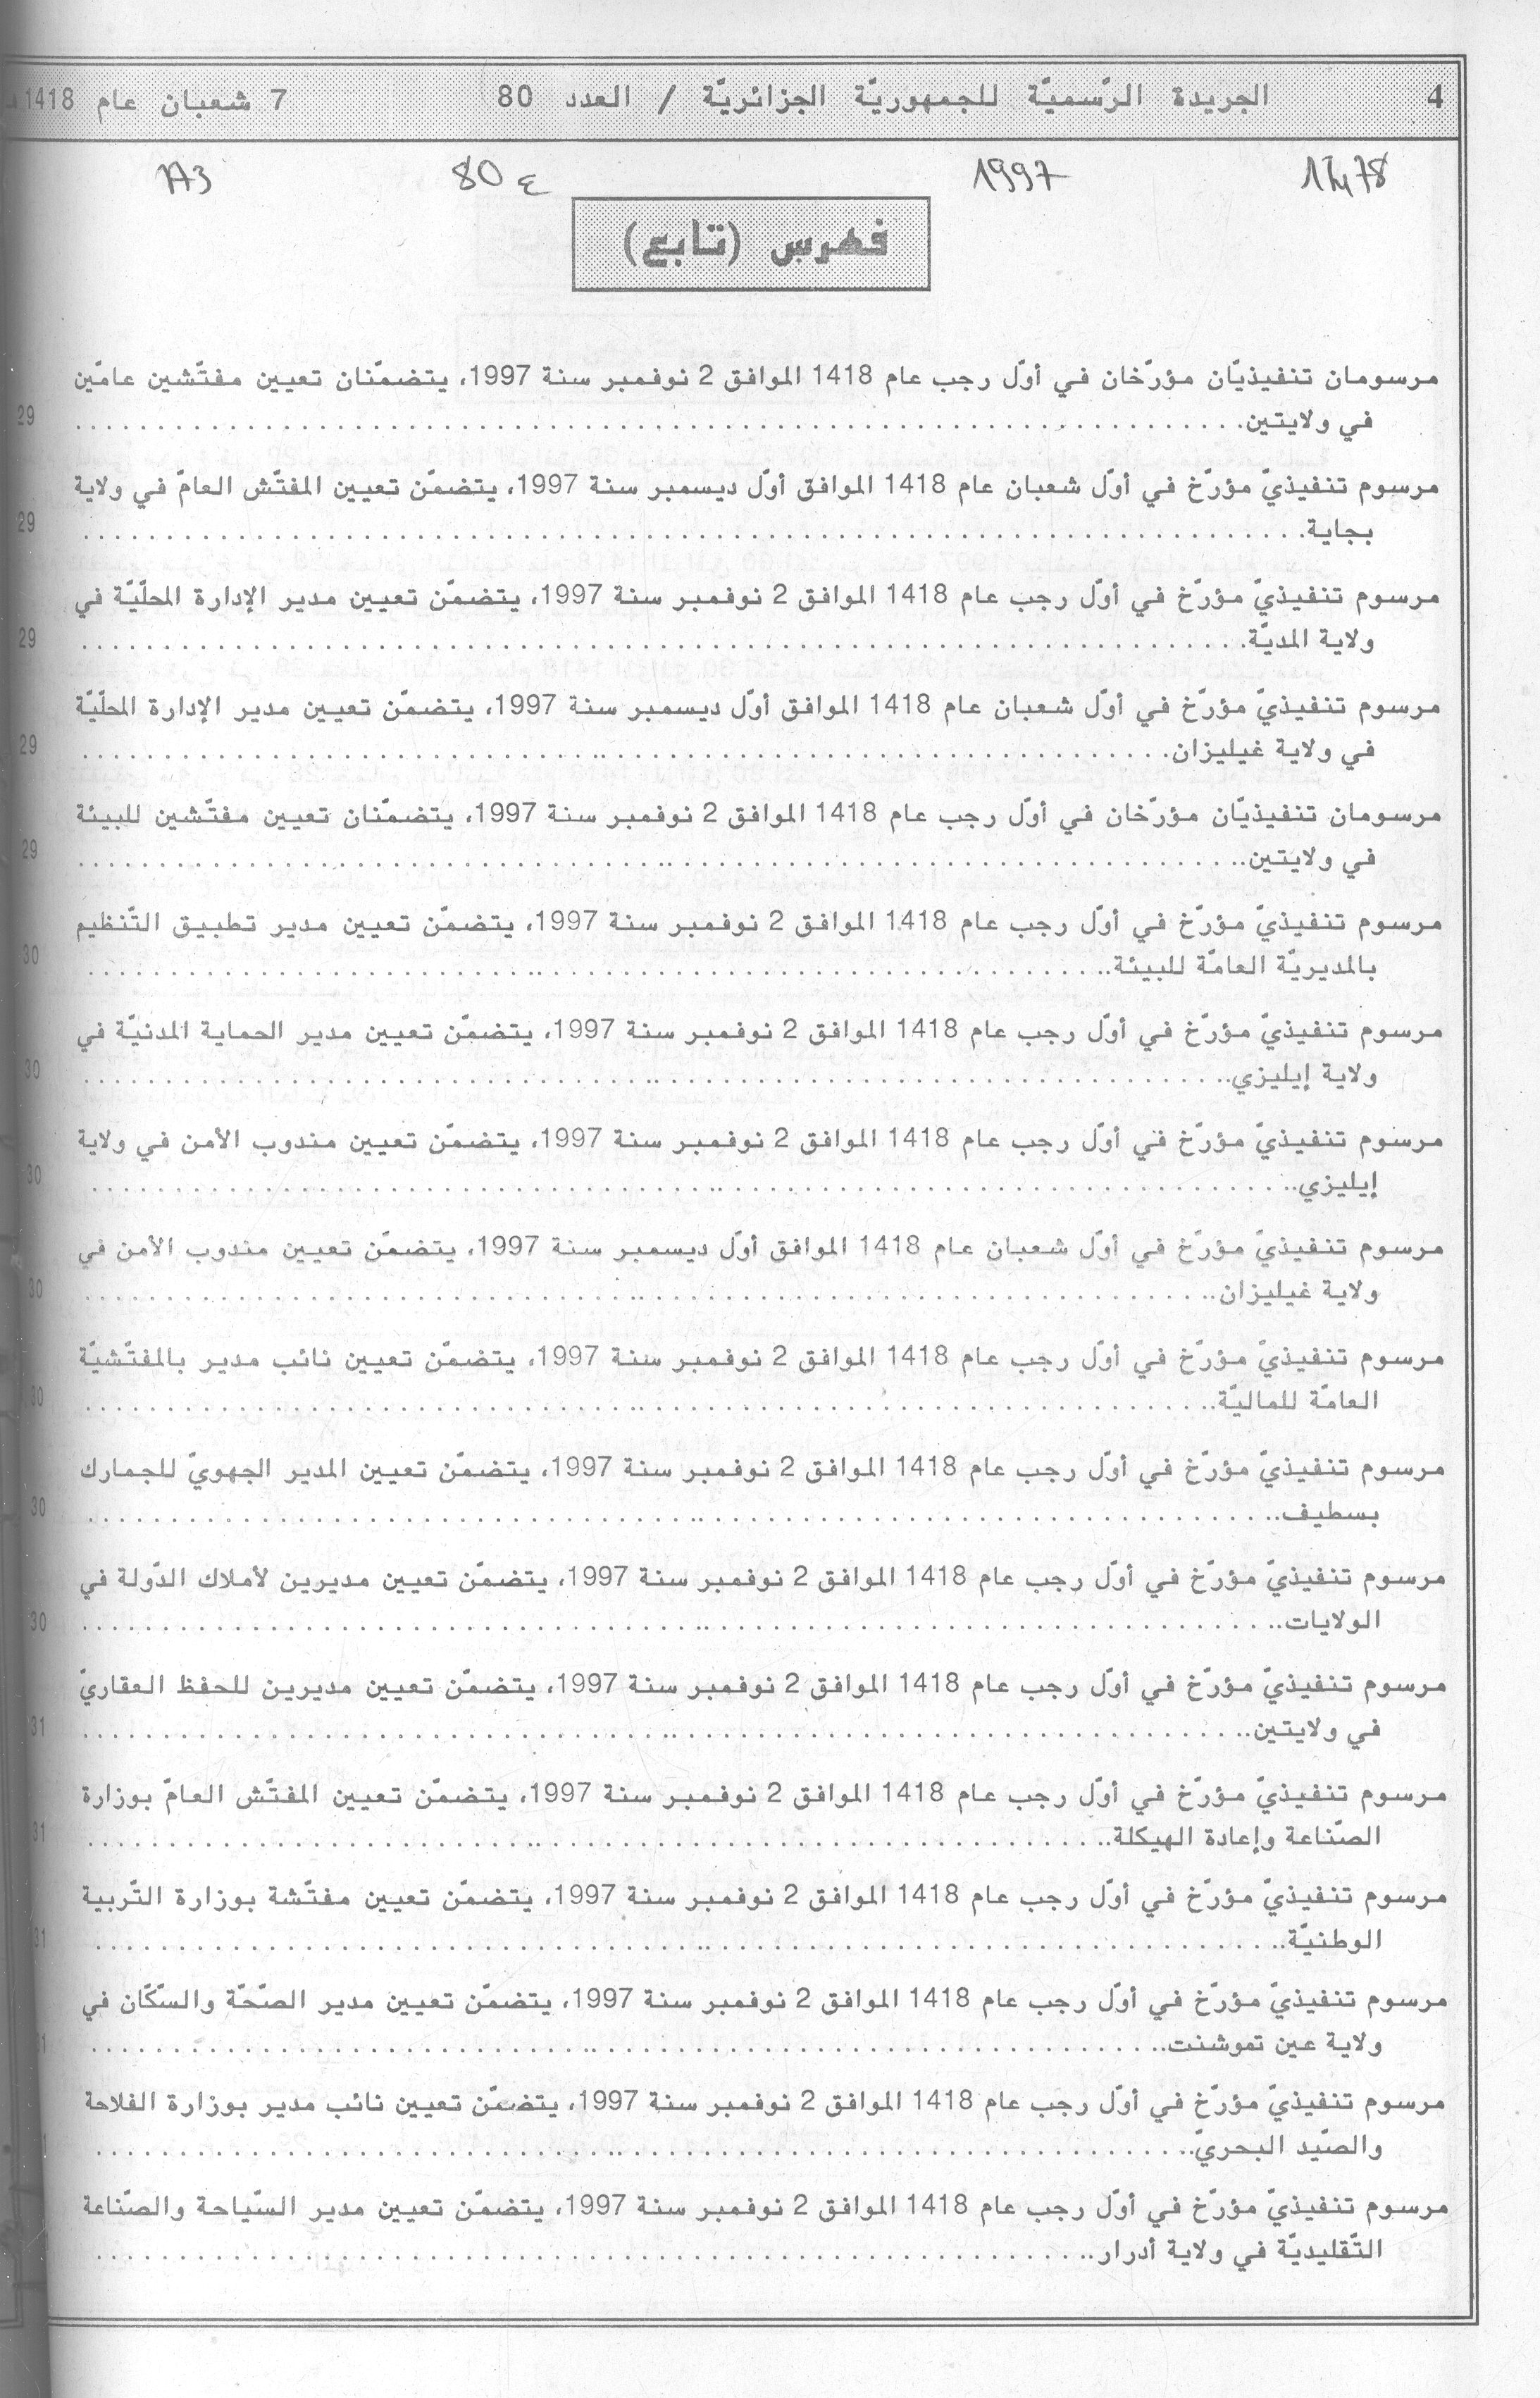 4
الجريدة الرّسميّة للجمهوريّة الجزائريّة / العدد 80
7 شعبان عام 1418
1997
80 ع
فهرس (تابع)
مرسومان تنفيذيّان مؤرّخان في أوّل رجب عام 1418 الموافق 2 نوفمبر سنة 1997، يتضمّنان تعيين مفتّشين عامّين
في ولايتين. . . . . . . . . . 29
مرسوم تنفيذيّ مؤرّخ في أوّل شعبان عام 1418 الموافق أوّل ديسمبر سنة 1997، يتضمّن تعيين المفتّش العامّ في ولاية
بجاية. . . . . . . . . . 29
مرسوم تنفيذيّ مؤرّخ في أوّل رجب عام 1418 الموافق 2 نوفمبر سنة 1997، يتضمّن تعيين مدير الإدارة المحلّيّة في
ولاية المديّة. . . . . . . . . . 29
مرسوم تنفيذيّ مؤرّخ في أوّل شعبان عام 1418 الموافق أوّل ديسمبر سنة 1997، يتضمّن تعيين مدير الإدارة المحلّيّة
في ولاية غيليزان. . . . . . . . . . 29
مرسومان تنفيذيّان مؤرّخان في أوّل رجب عام 1418 الموافق 2 نوفمبر سنة 1997، يتضمّنان تعيين مفتّشين للبيئة
في ولايتين. . . . . . . . . . 29
مرسوم تنفيذيّ مؤرّخ في أوّل رجب عام 1418 الموافق 2 نوفمبر سنة 1997، يتضمّن تعيين مدير تطبيق التّنظيم
بالمديريّة العامّة للبيئة. . . . . . . . . . 30
مرسوم تنفيذيّ مؤرّخ في أوّل رجب عام 1418 الموافق 2 نوفمبر سنة 1997، يتضمّن تعيين مدير الحماية المدنيّة في
ولاية إيليزي. . . . . . . . . . 30
مرسوم تنفيذيّ مؤرّخ في أوّل رجب عام 1418 الموافق 2 نوفمبر سنة 1997، يتضمّن تعيين مندوب الأمن في ولاية
إيليزي. . . . . . . . . . 30
مرسوم تنفيذيّ مؤرّخ في أوّل شعبان عام 1418 الموافق أوّل ديسمبر سنة 1997، يتضمّن تعيين مندوب الأمن في
ولاية غيليزان. . . . . . . . . . 30
مرسوم تنفيذيّ مؤرّخ في أوّل رجب عام 1418 الموافق 2 نوفمبر سنة 1997، يتضمّن تعيين نائب مدير بالمفتّشيّة
العامّة للماليّة. . . . . . . . . . 30
مرسوم تنفيذيّ مؤرّخ في أوّل رجب عام 1418 الموافق 2 نوفمبر سنة 1997، يتضمّن تعيين المدير الجهويّ للجمارك
بسطيف. . . . . . . . . . 30
مرسوم تنفيذيّ مؤرّخ في أوّل رجب عام 1418 الموافق 2 نوفمبر سنة 1997، يتضمّن تعيين مديرين لأملاك الدّولة في
الولايات. . . . . . . . . . 30
مرسوم تنفيذيّ مؤرّخ في أوّل رجب عام 1418 الموافق 2 نوفمبر سنة 1997، يتضمّن تعيين مديرين للحفظ العقاريّ
في ولايتين. . . . . . . . . . 31
مرسوم تنفيذيّ مؤرّخ في أوّل رجب عام 1418 الموافق 2 نوفمبر سنة 1997، يتضمّن تعيين المفتّش العامّ بوزارة
الصّناعة وإعادة الهيكلة. . . . . . . . . . 31
مرسوم تنفيذيّ مؤرّخ في أوّل رجب عام 1418 الموافق 2 نوفمبر سنة 1997، يتضمّن تعيين مفتّشة بوزارة التّربية
الوطنيّة. . . . . . . . . . 31
مرسوم تنفيذيّ مؤرّخ في أوّل رجب عام 1418 الموافق 2 نوفمبر سنة 1997، يتضمّن تعيين مدير الصّحّة والسّكّان في
ولاية عين تموشنت. . . . . . . . . .
مرسوم تنفيذيّ مؤرّخ في أوّل رجب عام 1418 الموافق 2 نوفمبر سنة 1997، يتضمّن تعيين نائب مدير بوزارة الفلاحة
والصّيد البحريّ. . . . . . . . . .
مرسوم تنفيذيّ مؤرّخ في أوّل رجب عام 1418 الموافق 2 نوفمبر سنة 1997، يتضمّن تعيين مدير السّياحة والصّناعة
التّقليديّة في ولاية أدرار. . . . . . . . . .